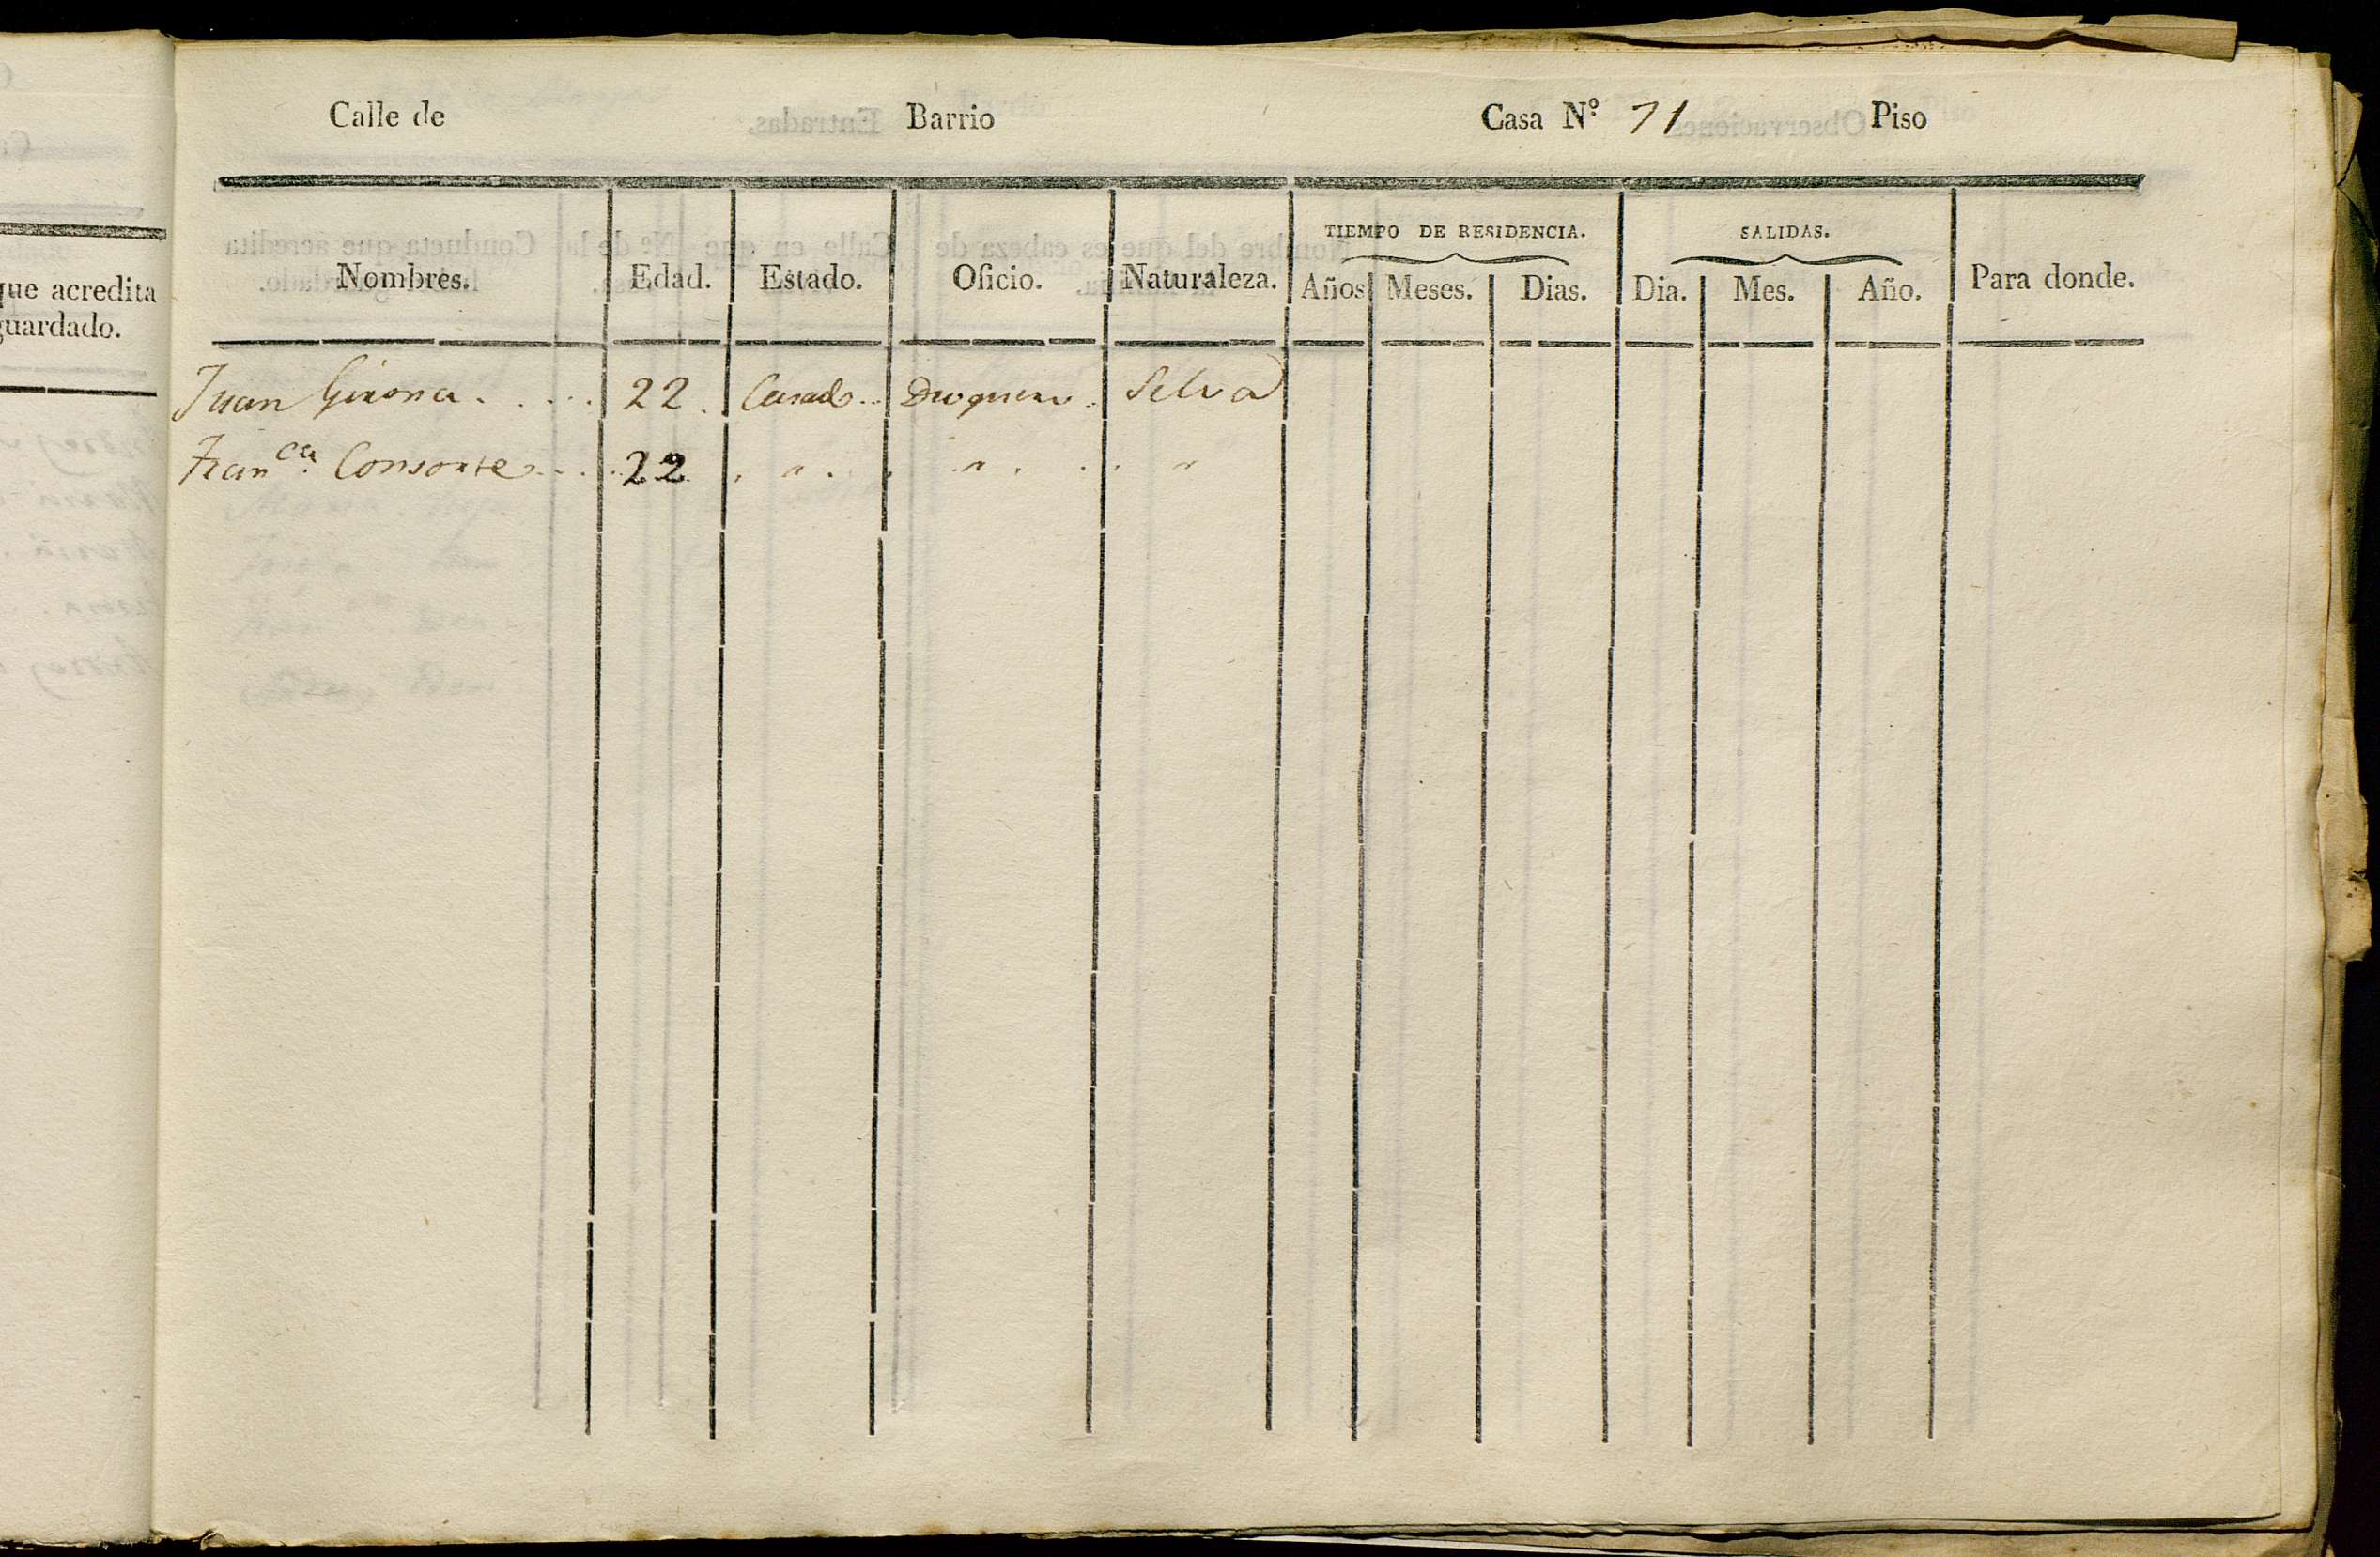 que acredita
guardado.
Calle de Barrio Casa N.º 71 Piso
Nombres. Edad. Estado. Oficio. Naturaleza. TIEMPO DE RESIDENCIA. SALIDAS. Para donde.
Años Meses. Dias. Dia. Mes. Año.
Juan Girona . . . . . 22 . Casado . . Droguero . . Selva
Fran.ca Consorte . . . . . 22 . " . . " . . . "